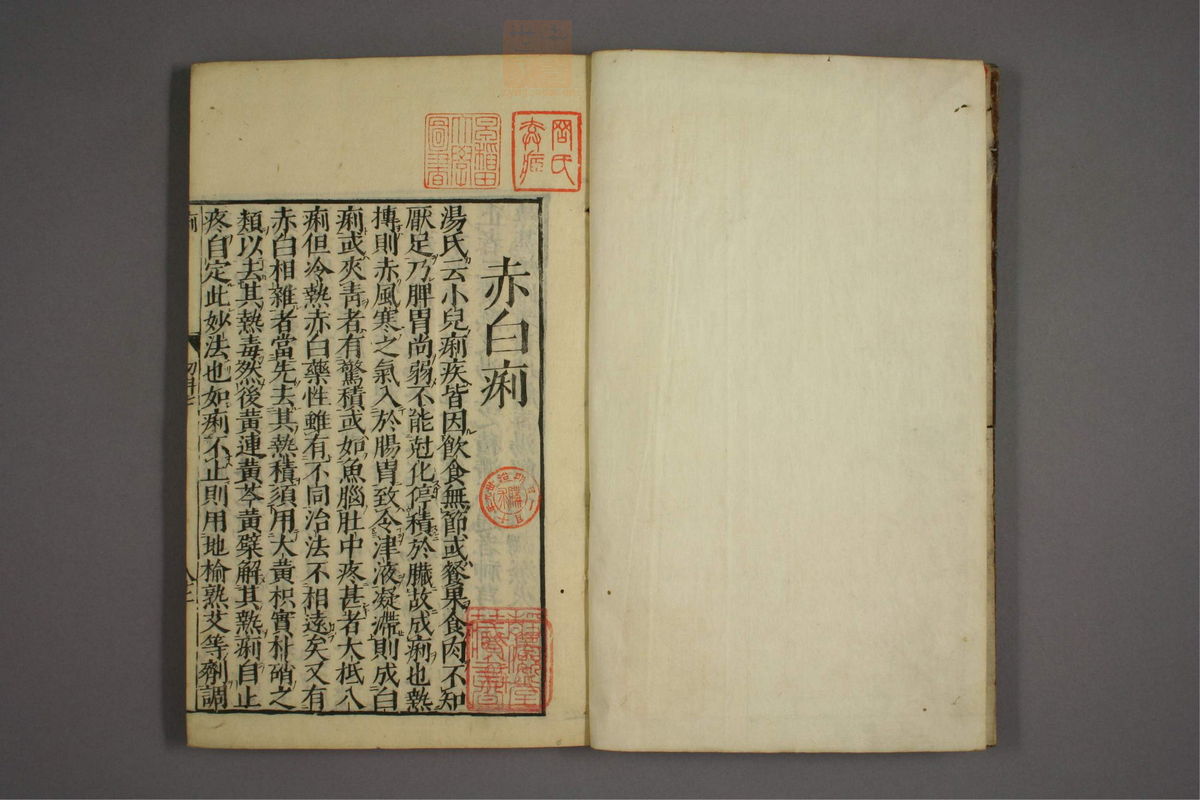 赤白痢
湯氏云小兒痢疾皆因飲食無節或餐果食肉不知
厭足乃脾胃尚弱不能尅化停積於臟故成痢也熱
搏則赤風寒之氣入於腸胃致令津液凝滯則成白
痢或夾靑者有驚積或如魚腦肚中疼甚者大柢八
痢但冷熱赤白藥性雖有不同治法不相遠矣又有
赤白相雜者當先去其熱積須用大黃枳實朴硝之
類以去其熱毒然後黃連黃芩黃蘗解其熱痢自止
疼自定此妙法也如痢不止則用地榆熟艾等劑調
早稻田
大學
圖書